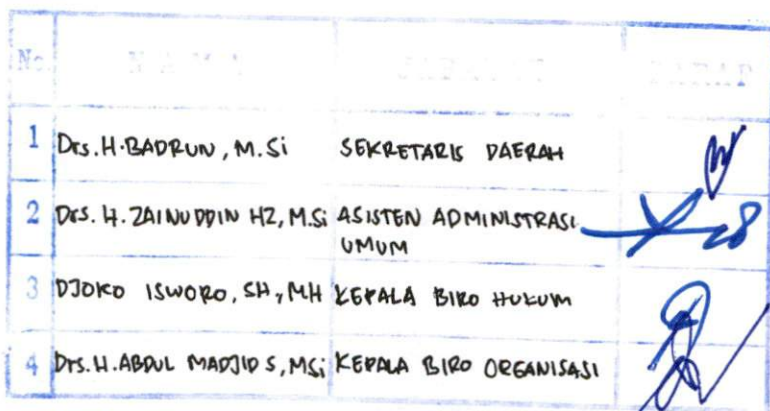 No. NAMA JABATAN PARAF
1 Drs. H. BADRUN, M.Si SEKRETARIS DAERAH
2 Drs. H. ZAINUDDIN HZ, M.Si ASISTEN ADMINISTRASI
UMUM
3 DJOKO ISWORO, SH, MH KEPALA BIRO HUKUM
4 Drs. H. ABDUL MADJID S, MSi KEPALA BIRO ORGANISASI